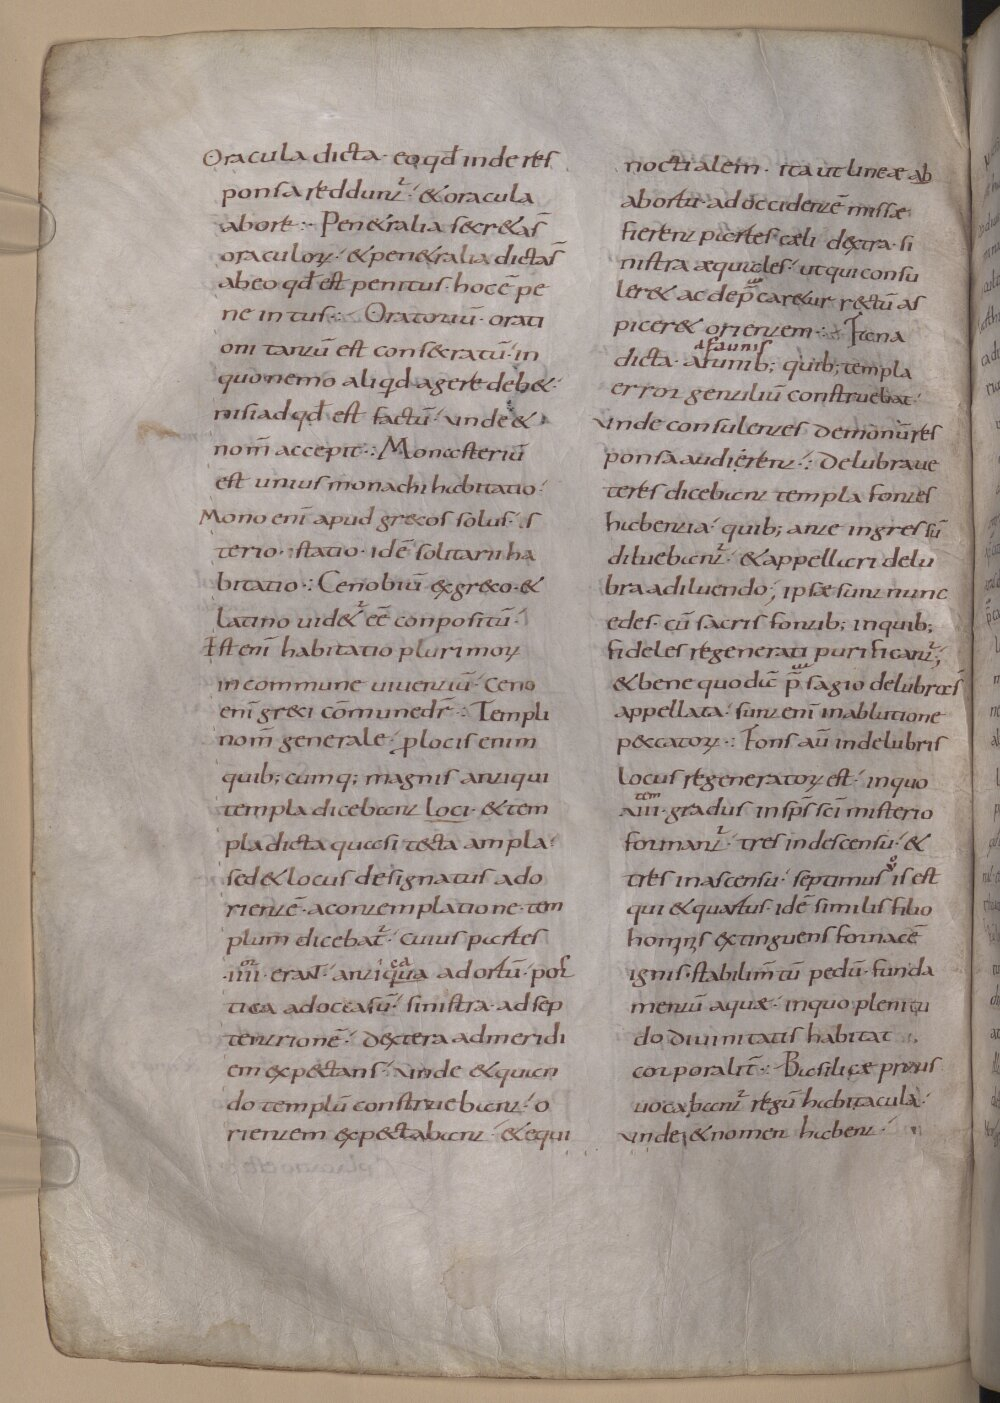 Oracula dicta· eo qđ inde res
ponsa reddunt̃· & oracula
abore·: Pen&ralia secr&as̄
oraculoꝝ· & pen&ralia dictas̄
ab eo qđ est penitus· hoc ē pe
ne intus·: Oratoriū· orati
oni tantū est cons&cratū· in
quo nemo aliqđ agere deb&·
nisi ad qđ est factū· unde &
nom̄ accepit·: Monasteriū
est unius monachi habitatio·
Mono eni apud grecos solus· s
terio· statio· idē solitarii ha
bitatio·: Cenobiū ex greco &
latino uid&ᷣ eē conpositū·
Est enī habitatio plurimoꝝ
in commune uiuentiū· Ceno
enī greci cōmune dr̄·: Templi
nom̄ generale· ꝓ locis enim
quib; cumq; magnis antiqui
templa dicebant loci· & tem
pla dicta quasi tecta ampla·
sed & locus designatus ad o
rientē· a contemplatione tem
plum dicebat̃· cuius partes
·iiii· erant· antiqua ad ortū· pos
tica ad occasū· sinistra· ad sep
tentrionē· dextera ad meridi
em expectans· unde & quan
do templū construebant· o
rientem expectabant· & equi
noctialem· ita ut lineæ ab
ab ortu· ad occidentē missæ
fierent partes cæli dextra· si
nistra æquales· ut qui consu
ler& ac dep̄car&ur rectū as
picer& orientem·: Fana
afaunis
dicta· afunib; quib; templa
error gentiliū construebat·
unde consulentes demonū res
ponsa audirent·: Delubra ue
teres dicebant templa fontes
habentia· quib; ante ingressū
diluebant̃· & appellari delu
bra a diluendo; ipsæ sunt nunc
edes· cū sacris fontib; in quib;
fideles regenerati purificant̃;
& bene quodā p̄sagio delubras̄
appellata· sunt enī in ablutione
peccatoꝝ·: Fons aū in delubris
locus regeneratoꝝ est· in quo
tem
a uii· gradus in sp̄s sci misterio
formant̃· tres in descensu· &
tres in ascensu· septimus is est
qui & quartus· idē similis filio
hominis extinguens fornacē
ignis· stabilim̄tū pedū· funda
mentū aquæ· in quo plenitu
do diuinitatis habitat
corporalit̄·: Basilicæ prius
uocabant̃ regū habitacula·
unde & nomen habent·